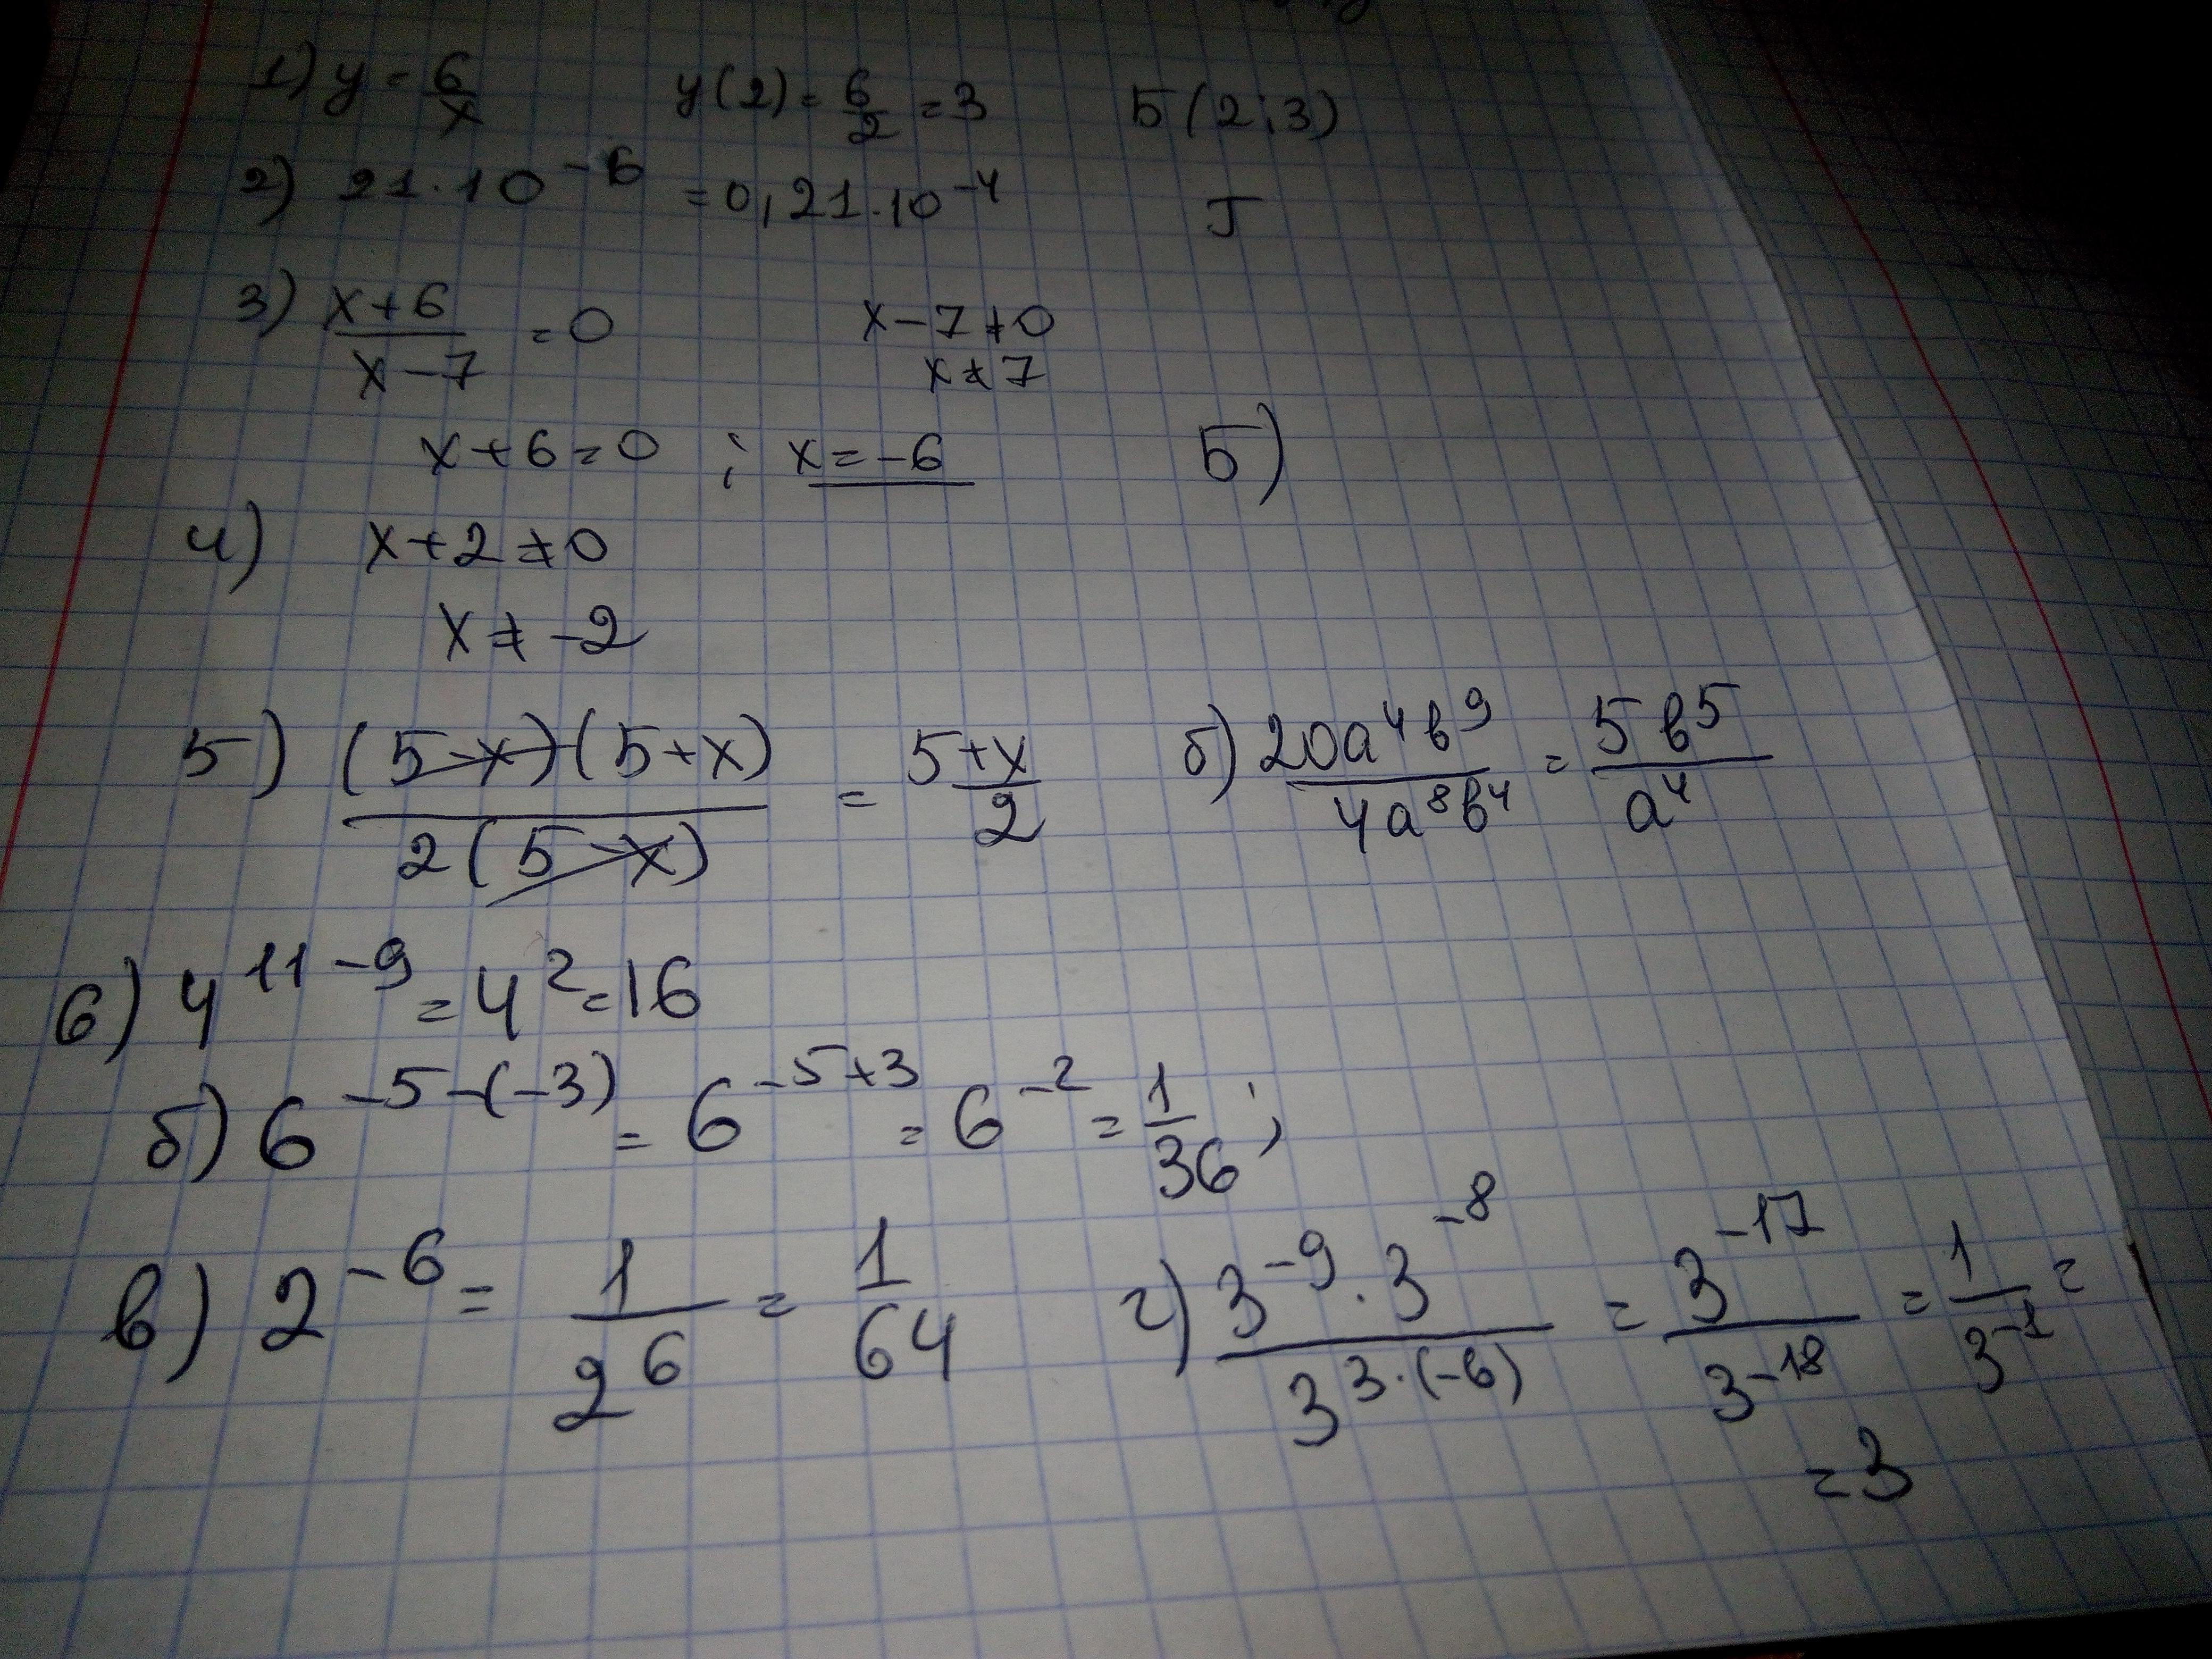 1) y = 6/x y(2) = 6/2 = 3 Б (2;3)
2) 21·10^-6 = 0,21·10^-4 Г
3) (x+6)/(x-7) = 0 x-7≠0
x≠7
x+6=0 ; x=-6 Б)
4) x+2≠0
x≠-2
5) (5-x)(5+x)/2(5-x) = (5+x)/2 б) 20a^4b^9/4a^8b^4 = 5b^5/a^4
6) 4^11-9 = 4^2 = 16
б) 6^-5-(-3) = 6^-5+3 = 6^-2 = 1/36 ;
в) 2^-6 = 1/2^6 = 1/64 г) 3^-9·3^-8/3^3·(-6) = 3^-17/3^-18 = 1/3^-1 =
= 3